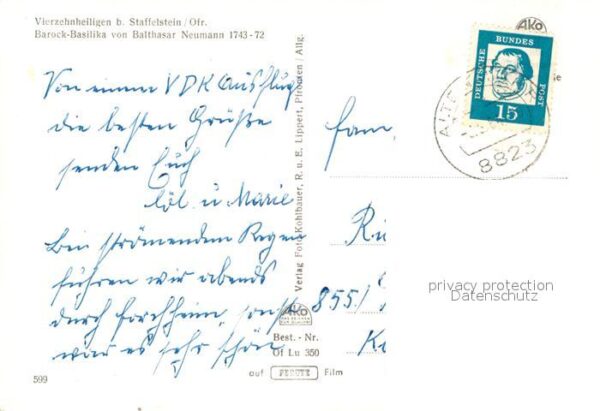 Vierzehnheiligen b. Staffelstein/Ofr.
Barock-Basilika von Balthasar Neumann 1743-72
Von einem VDK Ausflug
die besten Grüße
senden Euch
u Marie
Bei strömendem Regen
führen wir abends
durch Forchheim, sonst
war es sehr schön
599
Verlag Foto-Kohlbauer, R. u. E. Lippert, Pfronten/Allg.
AKO
Best.-Nr.
Of Lu 350
auf PERUTZ Film
AKO
DEUTSCHE BUNDES POST
15
8823
Fam.
8551
privacy protection
Datenschutz